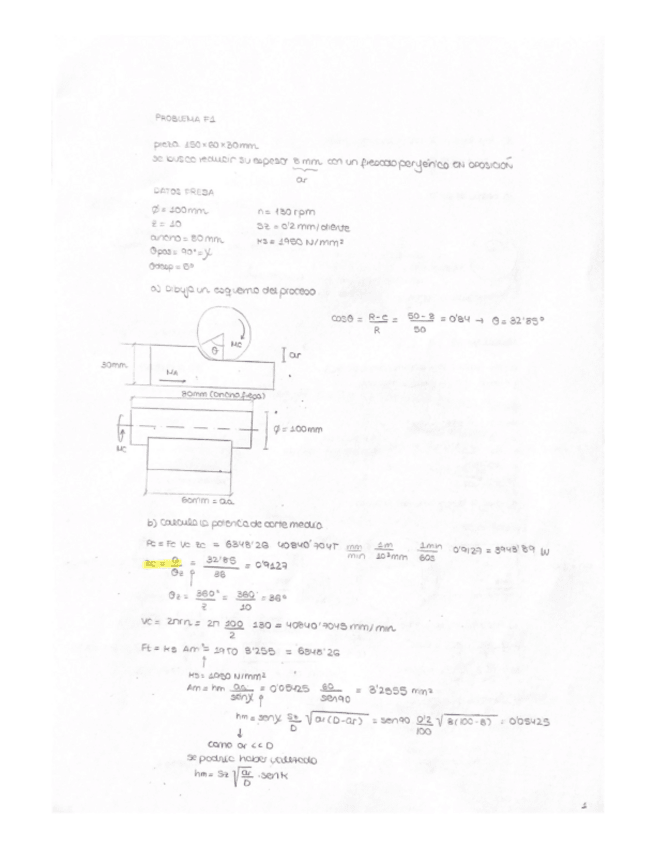 PROBLEMA P1
pieza 150×60×30mm
se busca reducir su espesor 8 mm con un fresado periférico EN OPOSICIÓN
ar
DATOS FRESA
Ø = 100mm n = 130 rpm
z = 10 Sz = 0'2 mm/diente
ancho = 80mm Ks = 1950 N/mm²
θpos = 90° = χ
θdesp = 5°
a) Dibuja un esquema del proceso
cosθ = R-C/R = 50-8/50 = 0'84 → θ = 32'85°
θ
MC
ar
30mm
MA
80mm (ancho fresa)
Ø = 100mm
MC
60mm = aa
b) Calcula la potencia de corte media
Pc = Fc Vc zc = 6348'26 40840'7045 mm/min 1m/10³mm 1min/60s 0'9127 = 3943'89 W
zc = θ/θz = 32'85/36 = 0'9127
θz = 360°/z = 360/10 = 36°
Vc = 2πrn = 2π 100/2 130 = 40840'7045 mm/min
Ft = Ks Am = 1950 3'255 = 6348'26
Ks = 1950 N/mm²
Am = hm aa/senχ = 0'05425 60/sen90 = 3'2555 mm²
hm = senχ Sz/D √ar(D-ar) = sen90 0'2/100 √8(100-8) = 0'05425
como ar << D
se podría haber utilizado
hm = Sz √ar/D · senχ
1